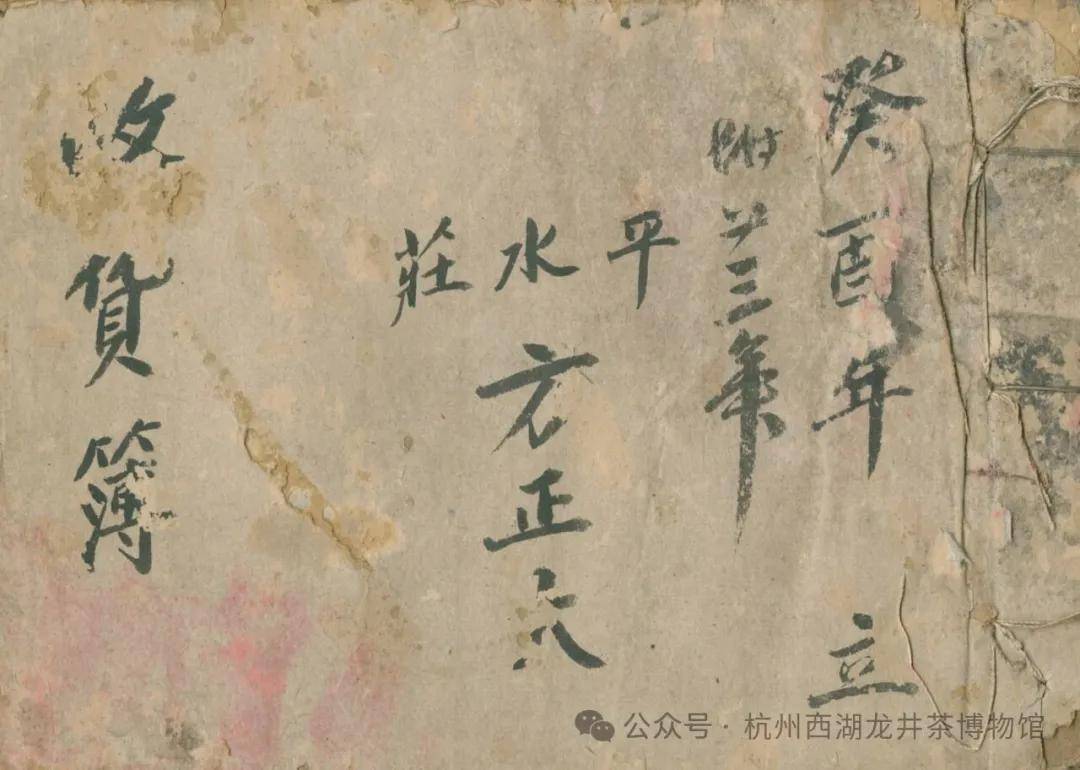 癸酉年 立
附廿三年
平水莊
方正大
收貨簿
公众号 · 杭州西湖龙井茶博物馆